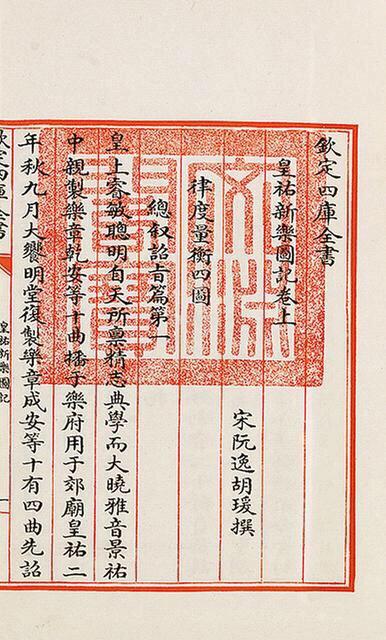 欽定四庫全書
皇祐新樂圖記卷上
宋阮逸胡瑗撰
律度量衡四圖
總叙詔旨篇第一
皇上睿敏聰明自天所稟精志典學而大曉雅音景祐
中親製樂章乾安等十曲播于樂府用于郊廟皇祐二
年秋九月大饗明堂後製樂章成安等十有四曲先詔
欽定四庫全書
皇祐新樂圖記
一